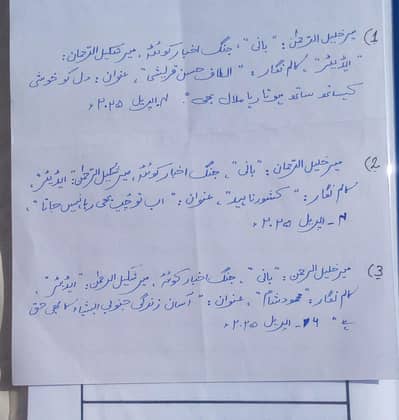 (1 میر خلیل الرحمٰن: "بانی"، جنگ اخبار کوئٹہ، میر شکیل الرحمان:
"ایڈیٹر"، کالم نگار: "الطاف حسن قریشی"، عنوان: دل کو خوشی
کیساتھ ساتھ ہوتا رہا ملال بھی"۔ اپریل ۲۰۲۵ء
(2 میر خلیل الرحمان: "بانی"، جنگ اخبار کوئٹہ، میر شکیل الرحمٰن: ایڈیٹر"،
کالم نگار: "کشور ناہید"، عنوان: "اب تو چُپ بھی رہا نہیں جاتا"،
۴۔ اپریل ۲۰۲۵ء
(3 میر خلیل الرحمٰن: "بانی"، جنگ اخبار کوئٹہ، میر شکیل الرحمٰن: "ایڈیٹر"،
کالم نگار: "محمود شام"، عنوان: "آسان زندگی جنوبی ایشیاء کا بھی حق
ہے" ۶۔ اپریل ۲۰۲۵ء